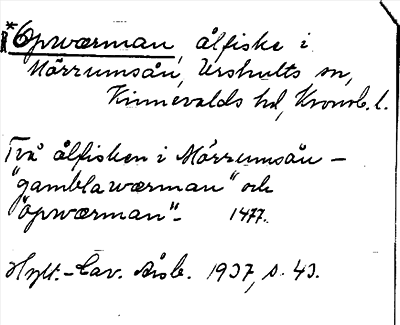 *Opwærman, ålfiske i
Mörrumsån, Urshults sn,
Kinnevalds hd, Kronob. l.
Två ålfisken i Mörrumsån –
"gambla wærman" och
"öpwærman"– 1477.
Hylt.-Cav. Årsb. 1937, s. 43.